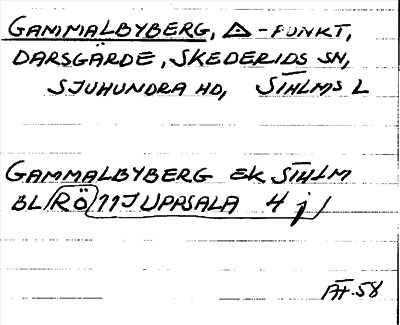 GAMMALBYBERG, △-PUNKT,
DARSGÄRDE, SKEDERIDS SN,
SJUHUNDRA HD, STHLMS L
GAMMALBYBERG EK STHLM
BL RÖ 11J UPPSALA 4 j
ÅH-58